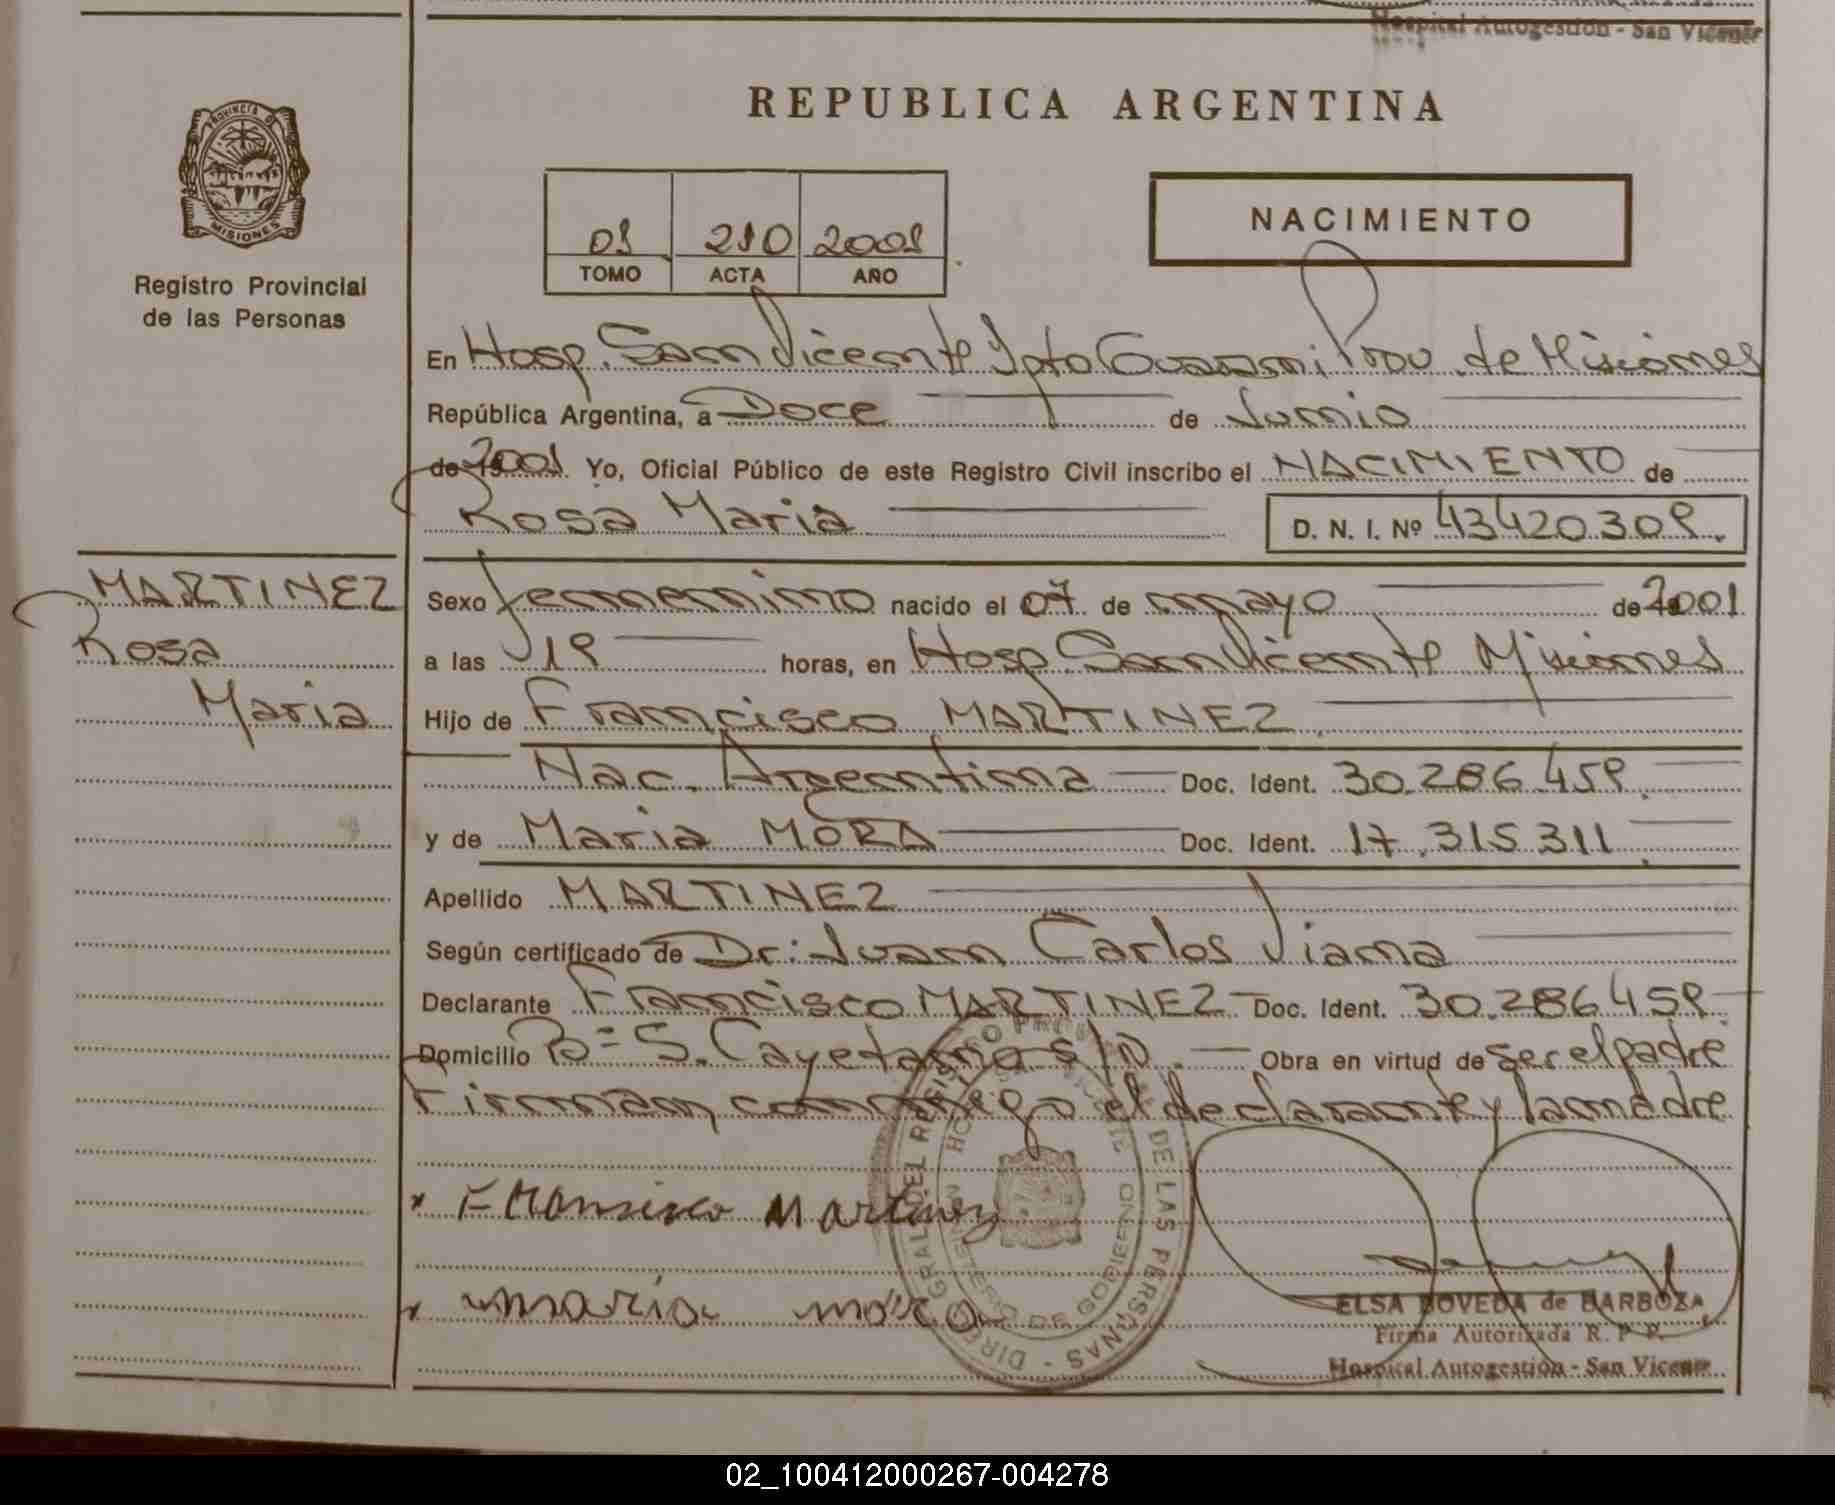 Hospital Autogestión - San Vicente
REPUBLICA ARGENTINA
PROVINCIA DE
MISIONES
Registro Provincial
de las Personas
01 210 2001
TOMO ACTA AÑO
NACIMIENTO
En Hosp. San Vicente Dpto Guarani Prov. de Misiones
República Argentina, a Doce de Junio
de 2001 Yo, Oficial Público de este Registro Civil inscribo el NACIMIENTO de
Rosa Maria D. N. I. Nº 43420.309.
MARTINEZ
Rosa
Maria
Sexo femenino nacido el 07 de mayo de 2001
a las 19 horas, en Hosp San Vicente Misiones
Hijo de Francisco MARTINEZ
Nac. Argentina Doc. Ident. 30.286.459.
y de Maria MORA Doc. Ident. 17.315.311.
Apellido MARTINEZ
Según certificado de Dr: Juan Carlos Viana
Declarante Francisco MARTINEZ Doc. Ident. 30.286459
Domicilio Bº S. Cayetano s/n. Obra en virtud de ser el padre
Firman conmigo el declarante y la madre
Fransisco Martinez
maria mora
DIREC. GRAL. DEL REGISTRO DE LAS PERSONAS
DE GOBIERNO
ELSA BOVEDA de BARBOZA
Firma Autorizada R. P. P.
Hospital Autogestión - San Vicente
02_100412000267-004278